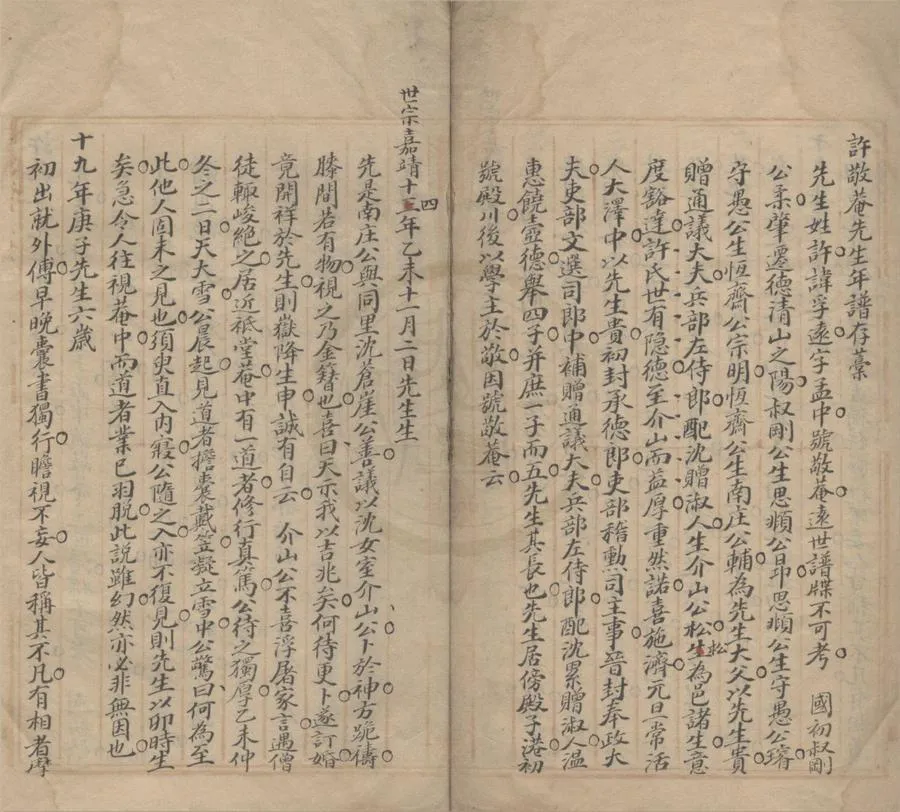 許敬菴先生年譜存藁
先生姓許諱孚遠字孟中號敬菴遠世譜牒不可考 國初叔剛
公柔肇遷德清山之陽叔剛公生思順公昂思順公生守愚公璿
守愚公生恒齋公宗明恆齋公生南庄公輔為先生大父以先生貴
贈通議大夫兵部左侍郎配沈贈淑人生介山公松松生為邑諸生意
度豁達許氏世有隱德至介山而益厚重然諾喜施濟元旦常活
人大澤中以先生貴初封承德郎吏部稽勳司主事晉封奉政大
夫吏部文選司郎中補贈通議大夫兵部左侍郎配沈累贈淑人溫
惠饒壼德舉四子并庶一子而五先生其長也先生居傍殿子港初
號殿川後以學主於敬因號敬菴云
世宗嘉靖十四年乙未十一月二日先生生
先是南庄公與同里沈蒼崖公善議以沈女室介山公卜於神方跪禱
膝間若有物視之乃金簪也喜曰天示我以吉兆矣何待更卜遂訂婚
竟開祥於先生則嶽降生申誠有自云 介山公不喜浮屠家言遇僧
徒輒峻絕之居近祗堂菴中有一道者修行真篤公待之獨厚乙未仲
冬之二日天大雪公晨起見道者擔囊戴笠凝立雪中公驚曰何為至
此他人固未之見也須臾直入內寢公隨之入亦不復見則先生以卯時生
矣急令人往視菴中而道者業已羽脫此說雖幻然亦必非無因也
十九年庚子先生六歲
初出就外傅早晚囊書獨行瞻視不妄人皆稱其不凡有相者摩